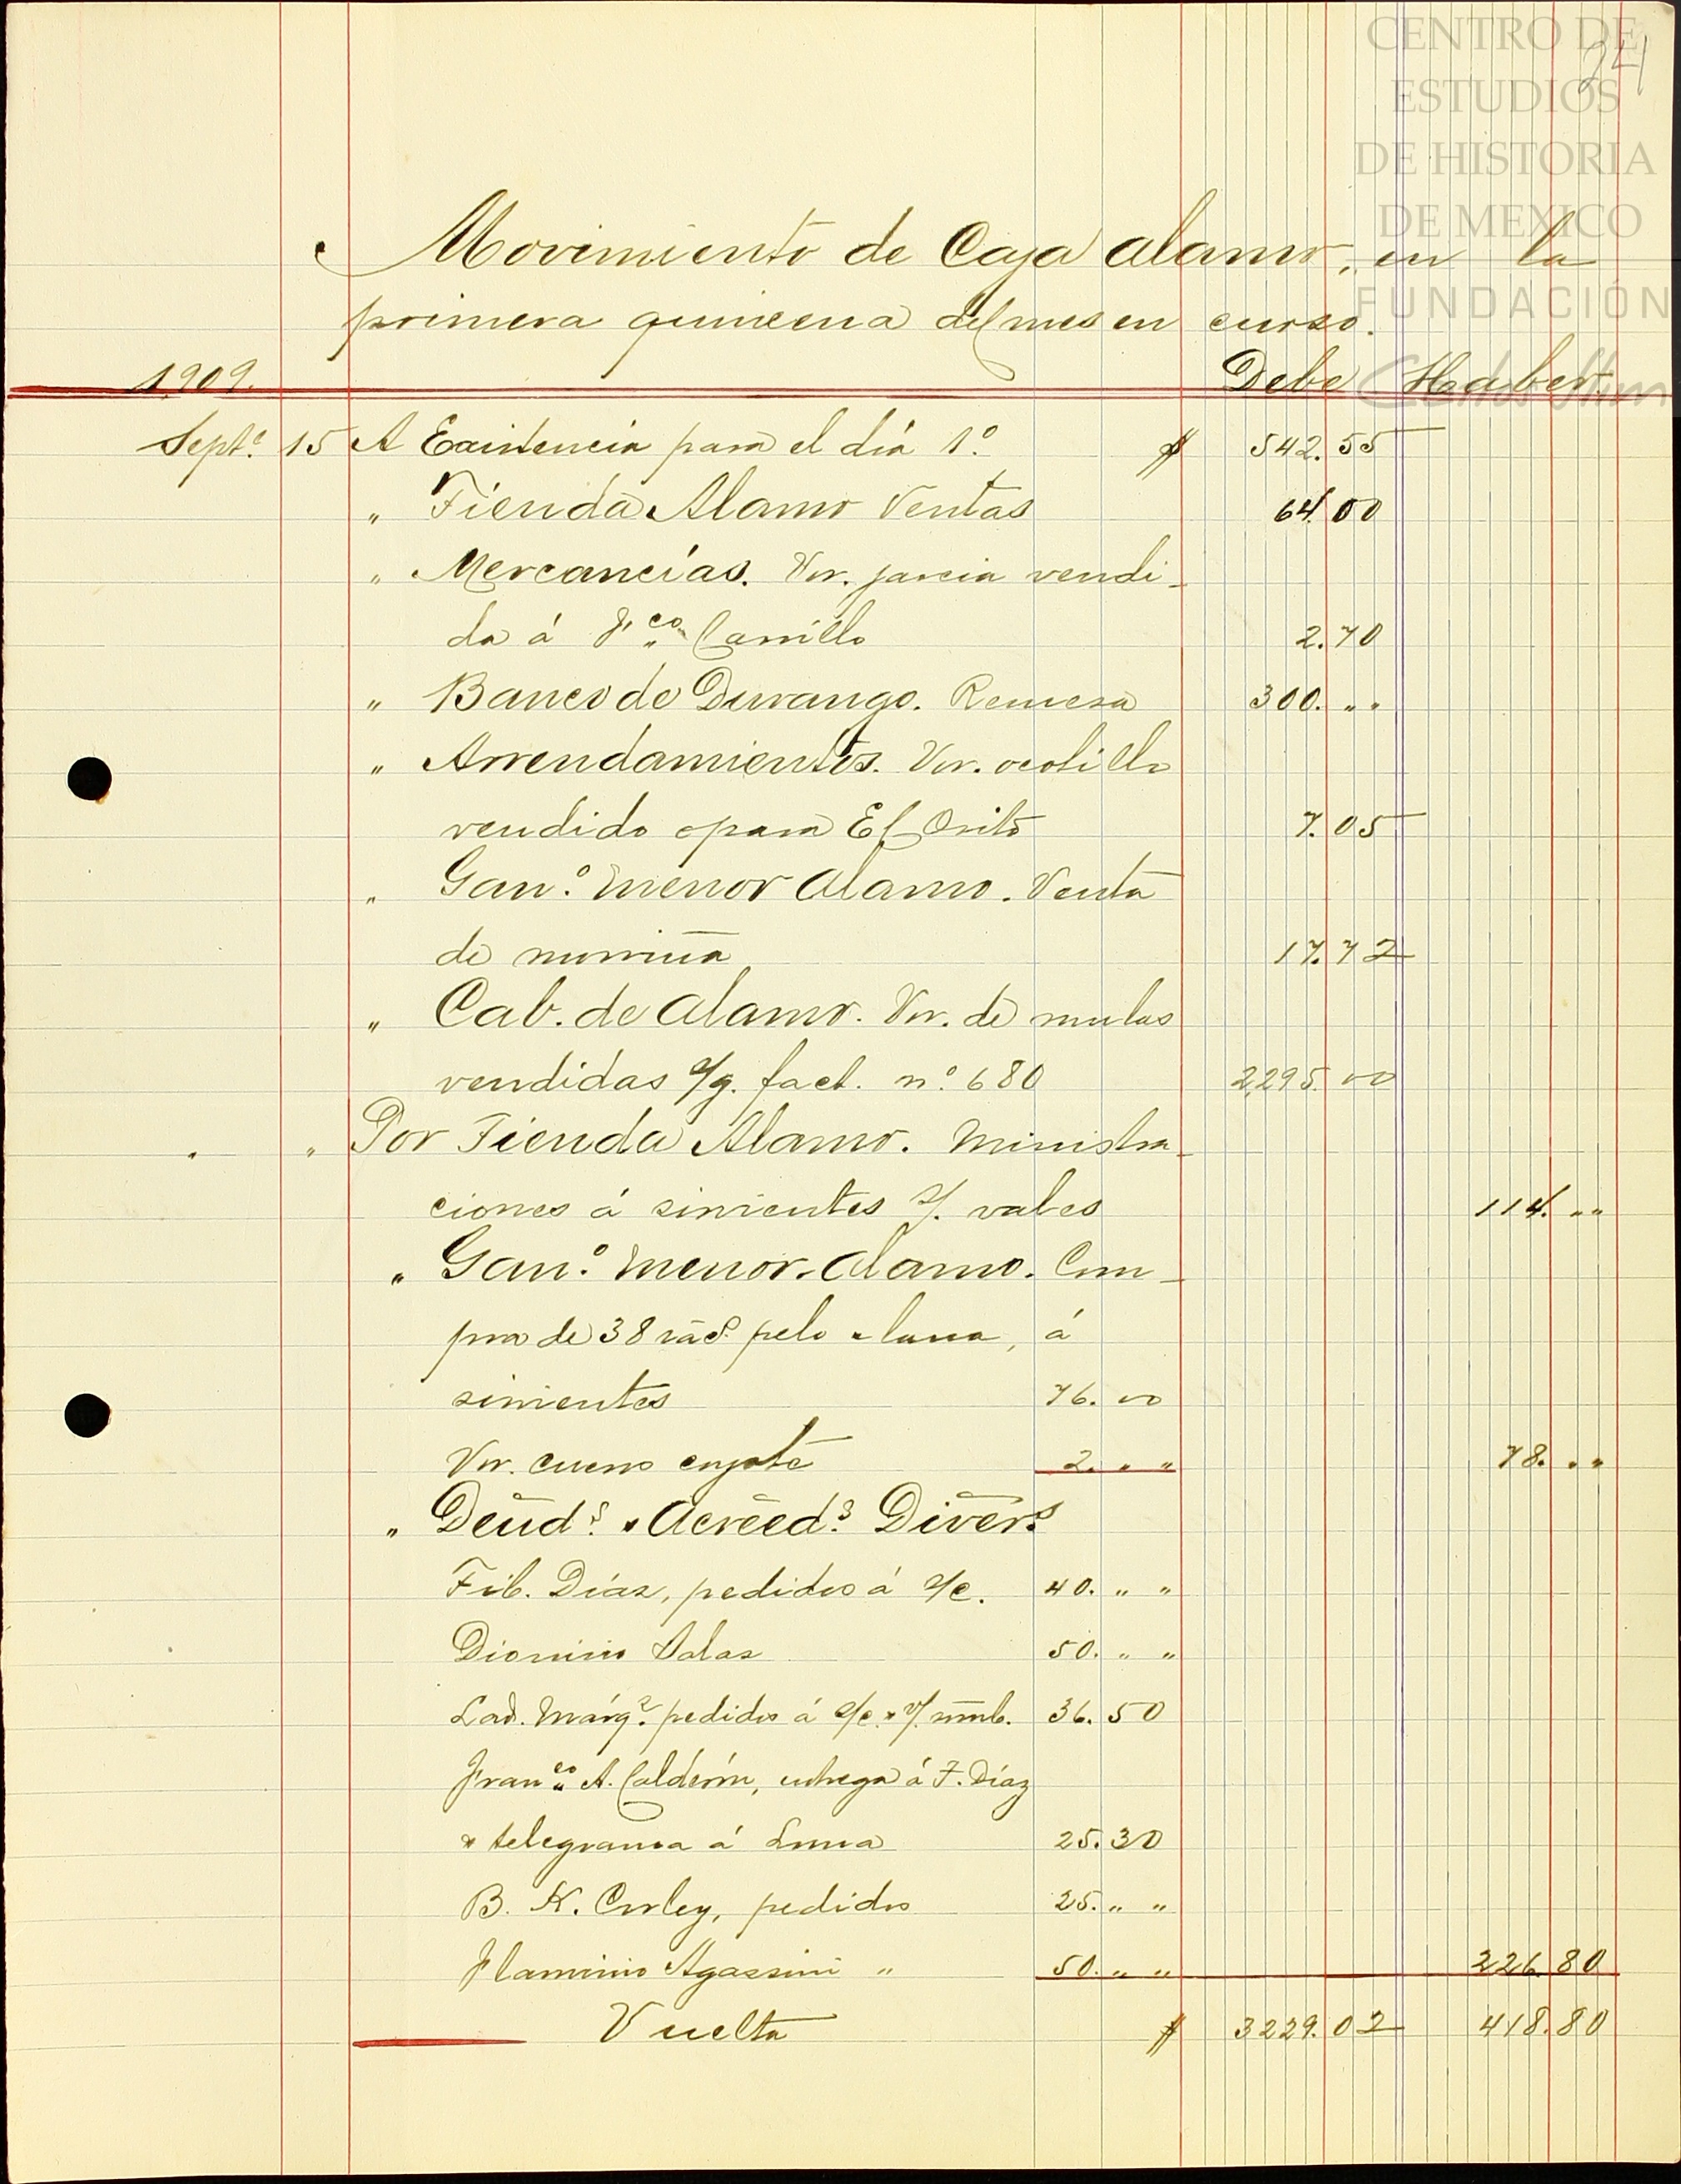 CENTRO DE
ESTUDIOS
DE HISTORIA
DE MEXICO
FUNDACIÓN
Movimiento de Caja Alamo, en la
primera quincena del mes en curso.
1909. Debe Haber
Septe. 15 A Existencia para el día 1º. $ 542.55
" Tienda Alamo Ventas 64.00
" Mercancías. Vor. jarcia vendi-
da á Fco. Carrillo 2.70
" Banco de Durango. Remesa 300. " "
" Arrendamientos. Vor. ocotillo
vendido para El Orito 7.05
" Gano. menor Alamo. Venta
de morriña 17.72
" Cab. de Alamo. Vor. de mulas
vendidas s/g. fact. nº. 680 2,295.00
" Por Tienda Alamo. Ministra-
ciones á sirvientes s/. vales 114. " "
" Gano. menor Alamo. Com-
pra de 38 pelo lana, á
sirvientes 76.00
Vor. cuero coyote 2. " " 78. " "
" Deuds. Acreeds. Divers
Fib. Díaz, pedidos á s/c. 40. " "
Dionisio Salas 50. " "
Lad. Márqz. pedidos á s/c. 36.50
Franco. A. Calderón, entrega á F. Díaz
telegrama á Luna 25.30
B. K. Corley, pedidos 25. " "
Flaminio Agassini " 50. " " 226.80
Vuelta $ 3229.02 418.80